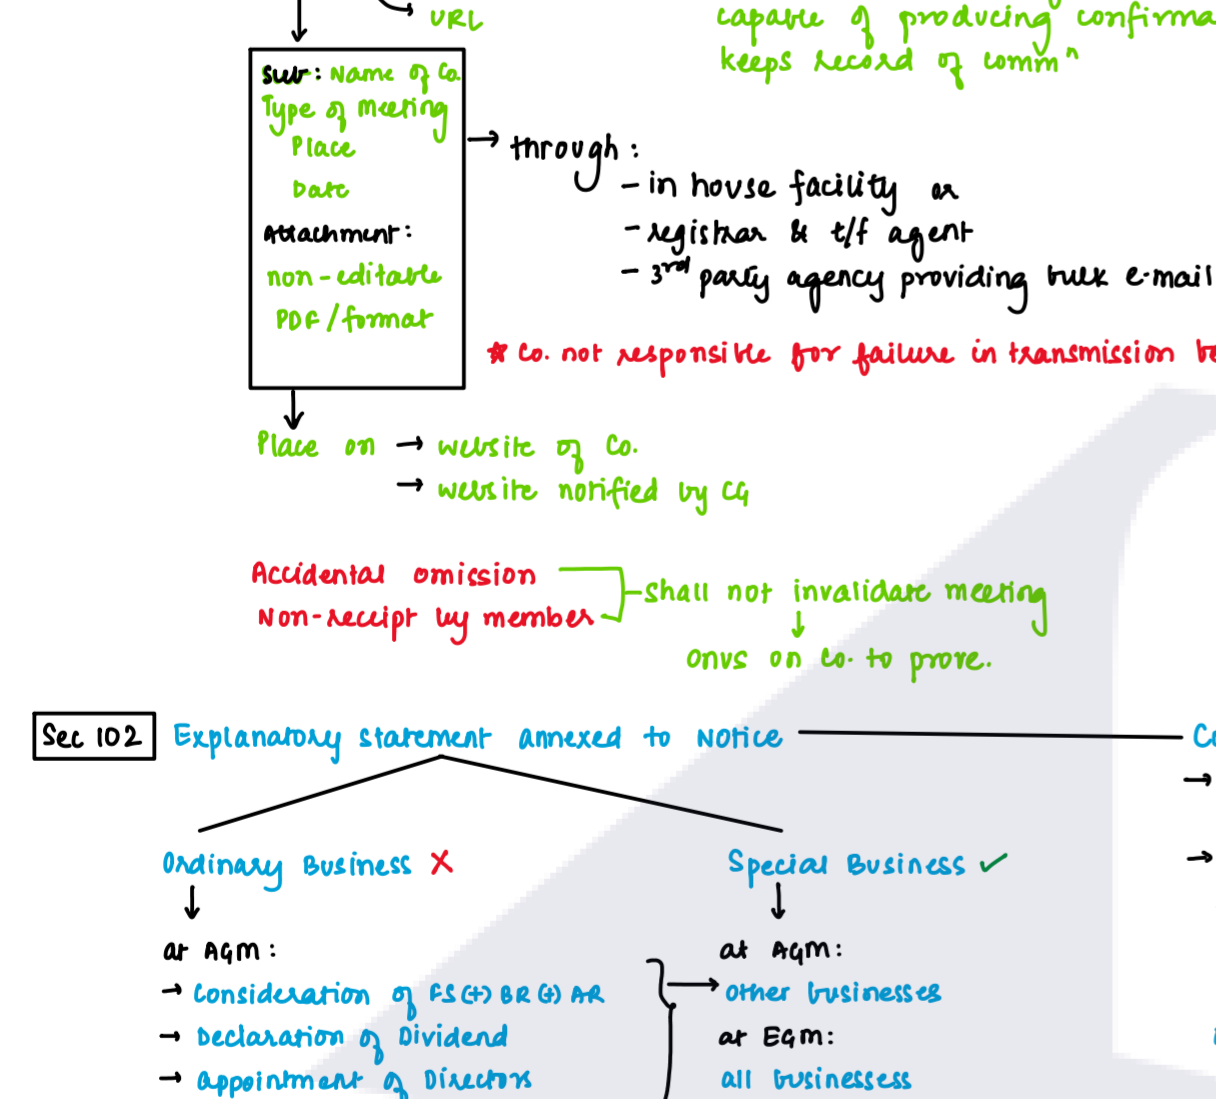 URL
capable of producing confirma
keeps record of commⁿ
Sub: Name of Co.
Type of meeting
Place
Date
Attachment:
non-editable
PDF/format
→ through:
- in house facility or
- registrar & t/f agent
- 3rd party agency providing bulk e-mail
* Co. not responsible for failure in transmission be
Place on → website of Co.
→ website notified by CG
Accidental omission
Non-receipt by member
shall not invalidate meeting
onus on Co. to prove.
Sec 102 Explanatory statement annexed to Notice
Co
Ordinary Business X
Special Business ✓
at AGM:
→ Consideration of FS (+) BR (+) AR
→ Declaration of Dividend
→ appointment of Directors
at AGM:
other businesses
at EGM:
all businessess